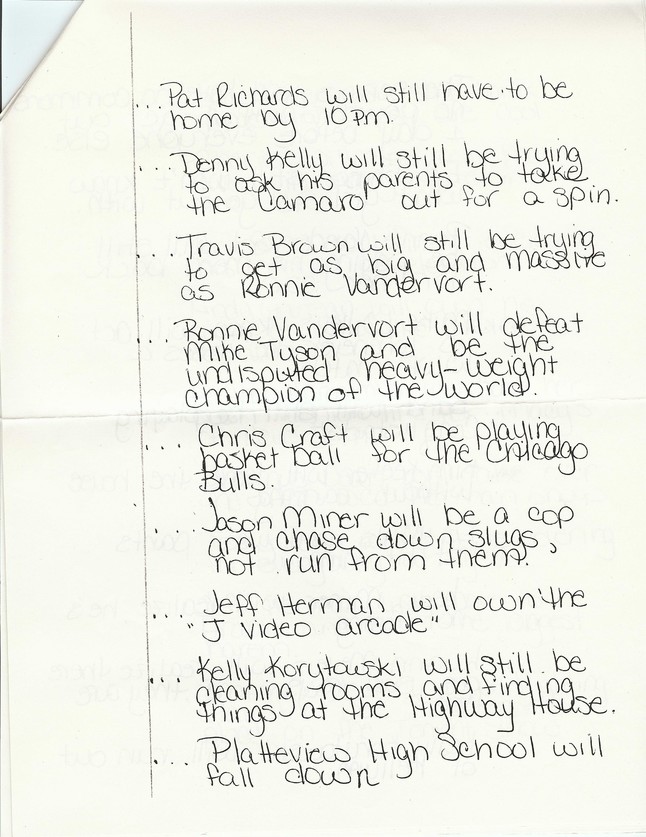 ... Pat Richards will still have to be
home by 10 pm.
... Denny Kelly will still be trying
to ask his parents to take
the Camaro out for a spin.
... Travis Brown will still be trying
to get as big and massive
as Ronnie Vandervort.
... Ronnie Vandervort will defeat
Mike Tyson and be the
undisputed heavy-weight
champion of the world.
... Chris Craft will be playing
basket ball for the Chicago
Bulls.
... Jason Miner will be a cop
and chase down slugs,
not run from them.
... Jeff Herman will own the
"J video arcade"
... Kelly Korytowski will still be
cleaning rooms and finding
things at the Highway House.
... Platteview High School will
fall down